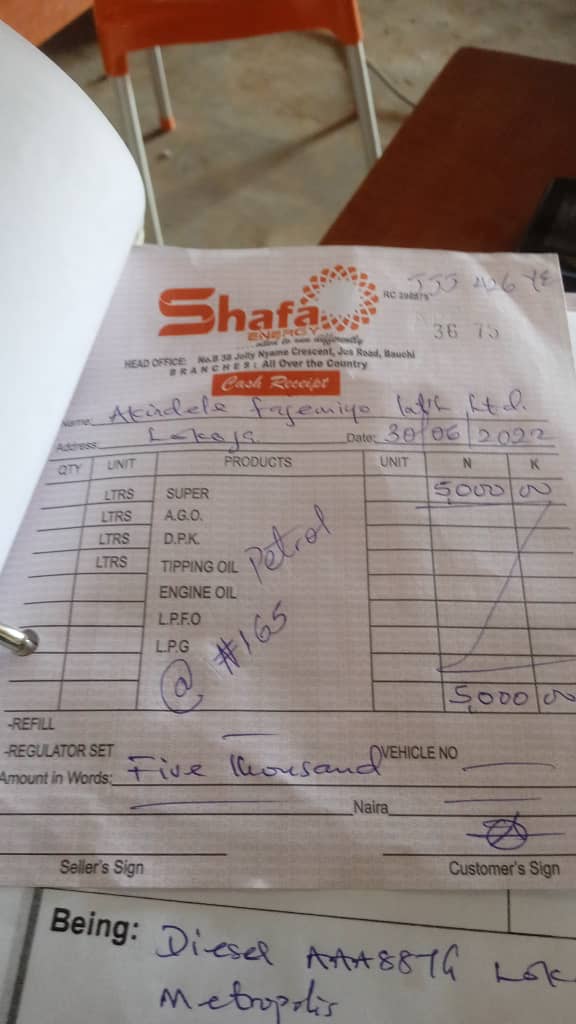 Shafa
ENERGY
RC 298875
36 75
HEAD OFFICE: No.B 38 Jolly Nyame Crescent, Jos Road, Bauchi
BRANCHES: All Over the Country
Cash Receipt
Name: Akindele Ltd.
Address: Lokoja Date: 30/06/2022
QTY UNIT PRODUCTS UNIT N K
LTRS SUPER 5,000 00
LTRS A.G.O.
LTRS D.P.K.
LTRS TIPPING OIL Petrol
ENGINE OIL
L.P.F.O
L.P.G
@ #165
5,000 00
-REFILL
-REGULATOR SET VEHICLE NO
Amount in Words: Five thousand
Naira
Seller's Sign Customer's Sign
Being: Diesel Lok
Metropolis